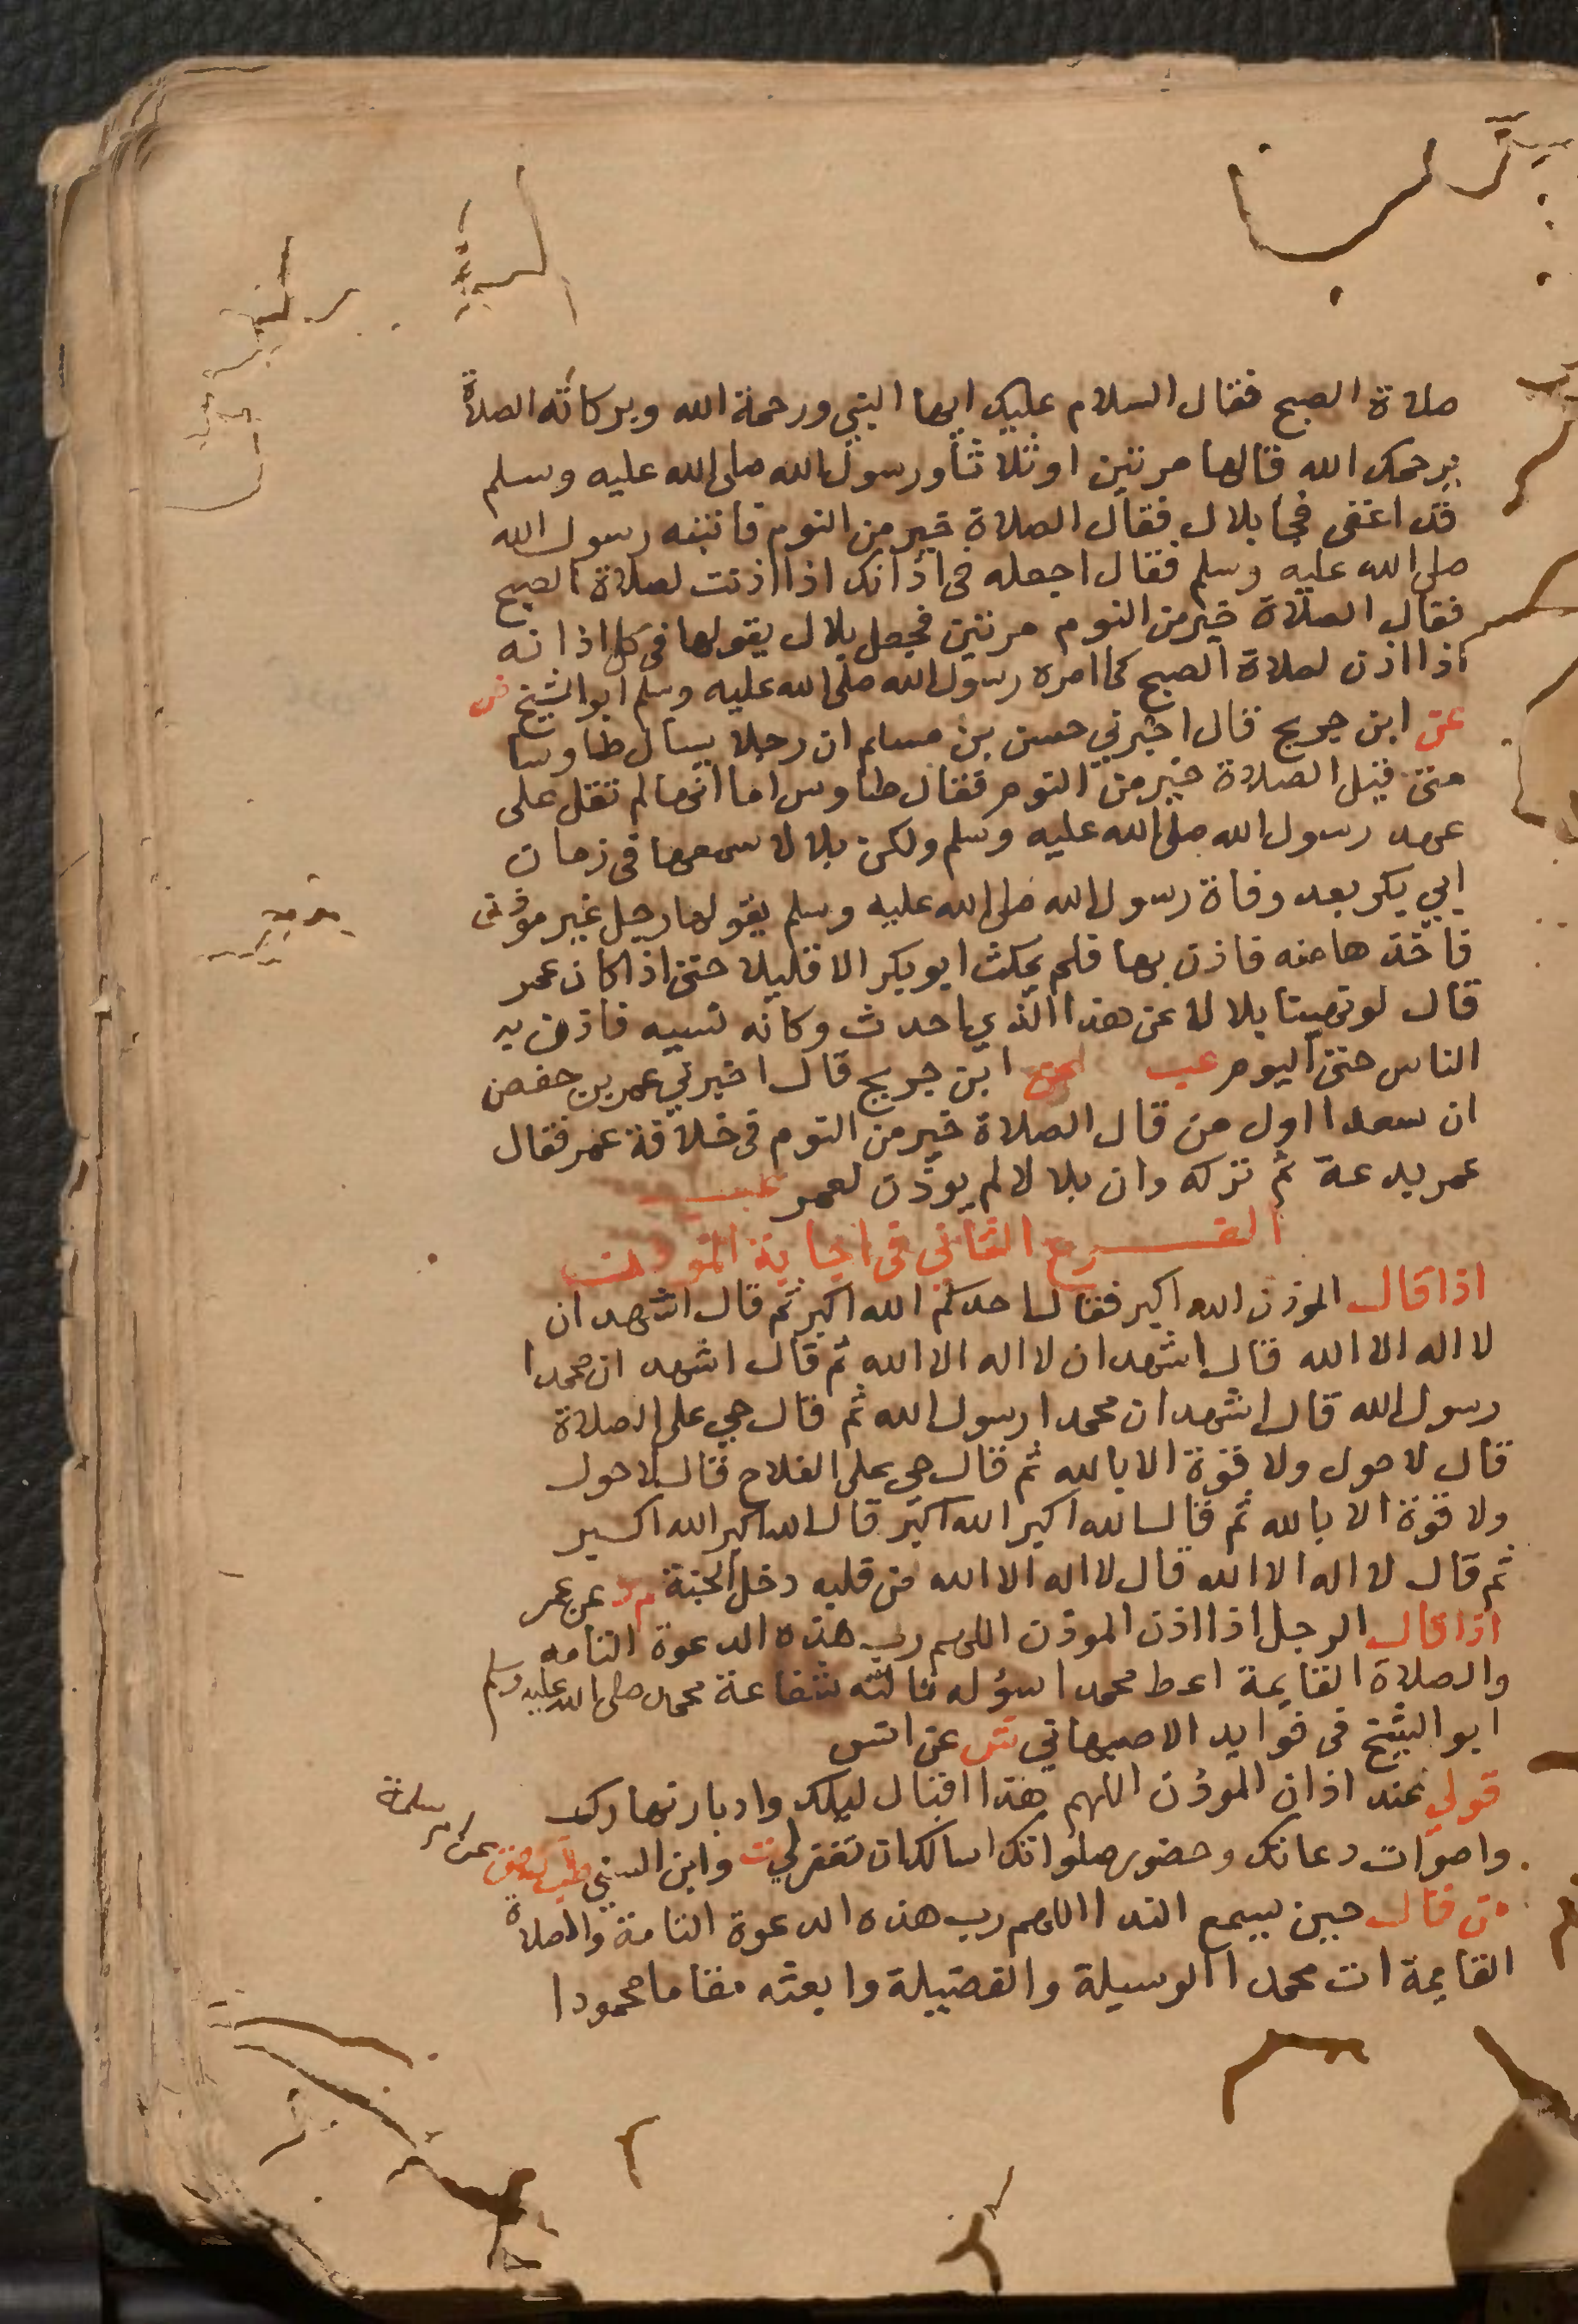 صلاة الصبح فقال السلام عليك ايها النبي ورحمة الله وبركاته الصلاة
يرحمك الله قالها مرتين او ثلاثا ورسول الله صلى الله عليه وسلم
قد اغفى فجا بلال فقال الصلاة خير من النوم فانتبه رسول الله
صلى الله عليه وسلم فقال اجعله في اذانك اذا اذنت لصلاة الصبح
فقال الصلاة خير من النوم مرتين فجعل بلال يقولها في كل اذانه
اذا اذن لصلاة الصبح كما امره رسول الله صلى الله عليه وسلم ابو الشيخ ض
عن ابن جريج قال اخبرني حسن بن مسلم ان رجلا يسال طاوسا
متى قيل الصلاة خير من النوم فقال طاوس اما انها لم تقل على
عهد رسول الله صلى الله عليه وسلم ولكن بلالا سمعها في زمان
ابي بكر بعد وفاة رسول الله صلى الله عليه وسلم يقولها رجل غير موذن
فاخذها منه فاذن بها فلم يمكث ابو بكر الا قليلا حتى اذا كان عمر
قال لو نهينا بلالا عن هذا الذي احدث وكانه نسيه فاذن به
الناس حتى اليوم عب عن ابن جريج قال اخبرني عمر بن حفص
ان سعدا اول من قال الصلاة خير من النوم في خلافة عمر فقال
عمر بدعة ثم تركه وان بلالا لم يوذن لعمر عب
الفرع الثاني في اجابة الموذن
اذا قال الموذن الله اكبر فقال احدكم الله اكبر ثم قال اشهد ان
لا اله الا الله قال اشهد ان لا اله الا الله ثم قال اشهد ان محمدا
رسول الله قال اشهد ان محمدا رسول الله ثم قال حي على الصلاة
قال لا حول ولا قوة الا بالله ثم قال حي على الفلاح قال لا حول
ولا قوة الا بالله ثم قال الله اكبر الله اكبر قال الله اكبر الله اكبر
ثم قال لا اله الا الله قال لا اله الا الله من قلبه دخل الجنة م د عن عمر
اذا قال الرجل اذا اذن الموذن اللهم رب هذه الدعوة التامه
والصلاة القايمة اعط محمدا سؤله نالته شفاعة محمد صلى الله عليه وسلم
ابو الشيخ في فوايد الاصبهاني عن انس
قولي عند اذان الموذن اللهم هذا اقبال ليلك وادبار نهارك
واصوات دعاتك وحضور صلواتك اسالك ان تغفر لي ت وابن السني طب ك هق عن ام سلمة
من قال حين يسمع الندا اللهم رب هذه الدعوة التامة والصلاة
القايمة ات محمدا الوسيلة والفضيلة وابعثه مقاما محمودا